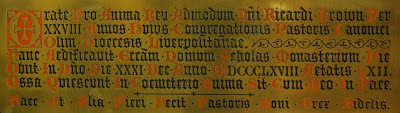 Orate Pro Anima Rev Admodum Dñi Ricardi Brown Per
XXVIII Annos Hujus Congregationis Pastoris Canonici
Olim Diocesis Liverpolitanae.
Hanc Aedificavit Ecclam Domum Scholas Monasterium Pie
Obiit In Dño Die XXXI Dec Anno MDCCCLXVIII Aetatis LXII.
Ossa Quiescunt In Coemeterio Anima Sit Cum Deo In Pace.
Haec Et Alia Fieri Fecit Pastoris Boni Grex Fidelis.